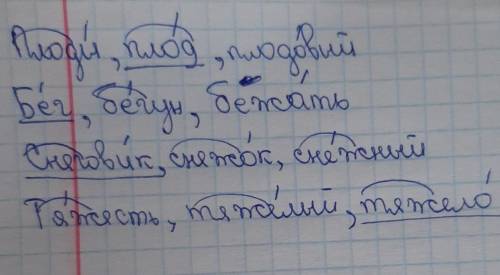 Плоди́, пло́д, плодо́вий
Бе́г, бе́гун, бежа́ть
Снегови́к, снежо́к, сне́жный
Тя́жесть, тяжё́лый, тяжело́